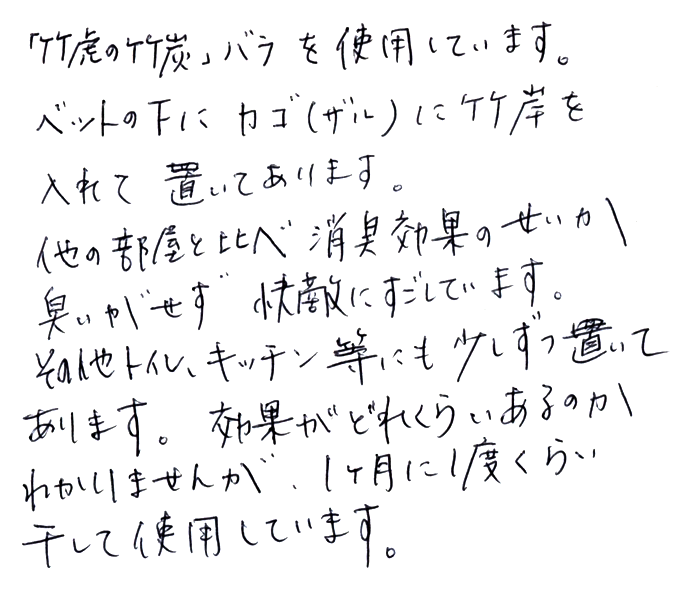 「竹虎の竹炭」バラを使用しています。
ベットの下にカゴ(ザル)に竹岸を
入れて置いてあります。
他の部屋と比べ消臭効果のせいか
臭いがせず快敵にすごしています。
その他トイレ、キッチン等にも少しずつ置いて
あります。効果がどれくらいあるのか
わかりませんが、1ヶ月に1度くらい
干して使用しています。